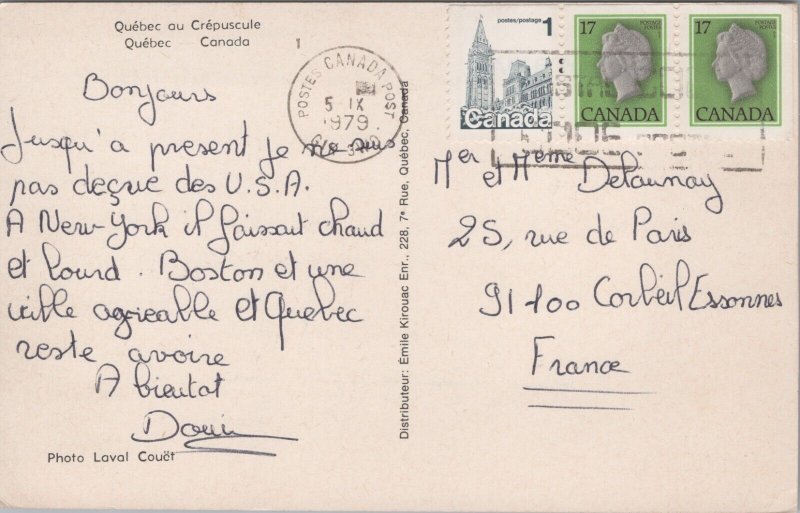 Québec au Crépuscule
Québec Canada
1
Bonjours
Jusqu'a present je ne suis
pas deçue des U.S.A.
A New-York il faissait chaud
et lourd. Boston et une
ville agréable et Quebec
reste avoire
A bientot
Photo Laval Couët
Distributeur: Émile Kirouac Enr., 228, 7e Rue, Québec, Canada
POSTES CANADA POST
5 IX
1979
postes/postage 1
Canada
17 POSTAGE POSTES
CANADA
17 POSTAGE POSTES
CANADA
CODE
Mer et Meme Delaunay
25, rue de Paris
91100 Corbeil Essonnes
France